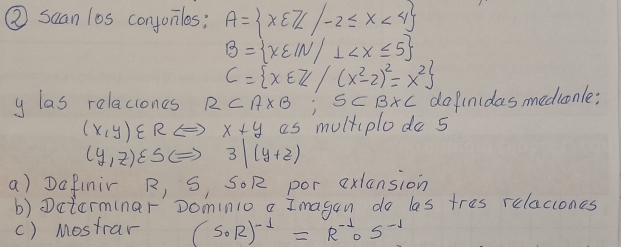 ② Sean los conjuntos: A = {x ∈ ℤ / -2 ≤ x < 4}
B = {x ∈ ℕ / 1 < x ≤ 5}
C = {x ∈ ℤ / (x²-2)² = x²}
y las relaciones R ⊂ A×B ; S ⊂ B×C definidas mediante:
(x,y) ∈ R ⟺ x+y es multiplo de 5
(y,z) ∈ S ⟺ 3 | (y+z)
a) Definir R, S, S∘R por extensión
b) Determinar Dominio e Imagen de las tres relaciones
c) Mostrar (S∘R)⁻¹ = R⁻¹∘S⁻¹